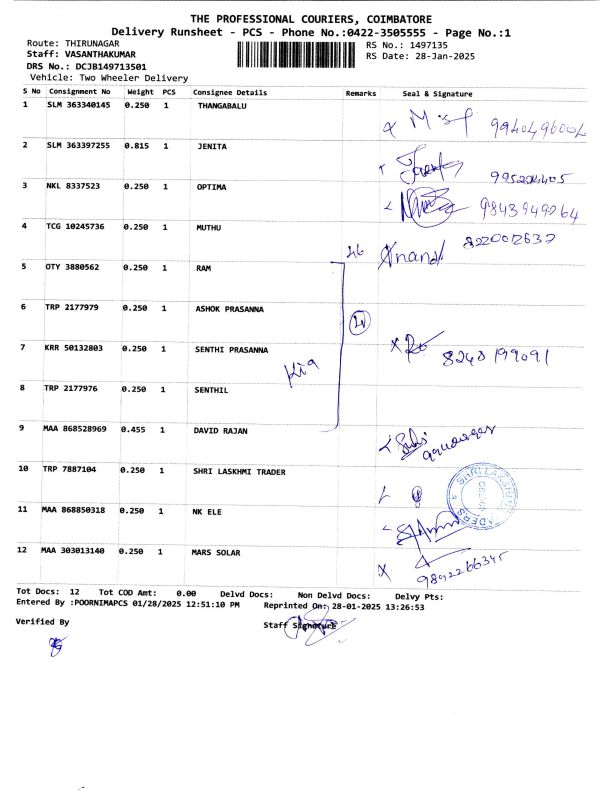 THE PROFESSIONAL COURIERS, COIMBATORE
Delivery Runsheet - PCS - Phone No.:0422-3505555 - Page No.:1
Route: THIRUNAGAR RS No.: 1497135
Staff: VASANTHAKUMAR RS Date: 28-Jan-2025
DRS No.: DCJB149713501
Vehicle: Two Wheeler Delivery
S No Consignment No Weight PCS Consignee Details Remarks Seal & Signature
1 SLM 363340145 0.250 1 THANGABALU
2 SLM 363397255 0.815 1 JENITA
3 NKL 8337523 0.250 1 OPTIMA 9843949264
4 TCG 10245736 0.250 1 MUTHU 46 Anand 8220012637
5 OTY 3880562 0.250 1 RAM
6 TRP 2177979 0.250 1 ASHOK PRASANNA
7 KRR 50132803 0.250 1 SENTHI PRASANNA Kia 8248199091
8 TRP 2177976 0.250 1 SENTHIL
9 MAA 868528969 0.455 1 DAVID RAJAN
10 TRP 7887104 0.250 1 SHRI LASKHMI TRADER SHRI LAKSHMI TRADERS
11 MAA 868850318 0.250 1 NK ELE
12 MAA 303013140 0.250 1 MARS SOLAR 9892266345
Tot Docs: 12 Tot COD Amt: 0.00 Delvd Docs: Non Delvd Docs: Delvy Pts:
Entered By :POORNIMAPCS 01/28/2025 12:51:10 PM Reprinted On: 28-01-2025 13:26:53
Verified By Staff Signature